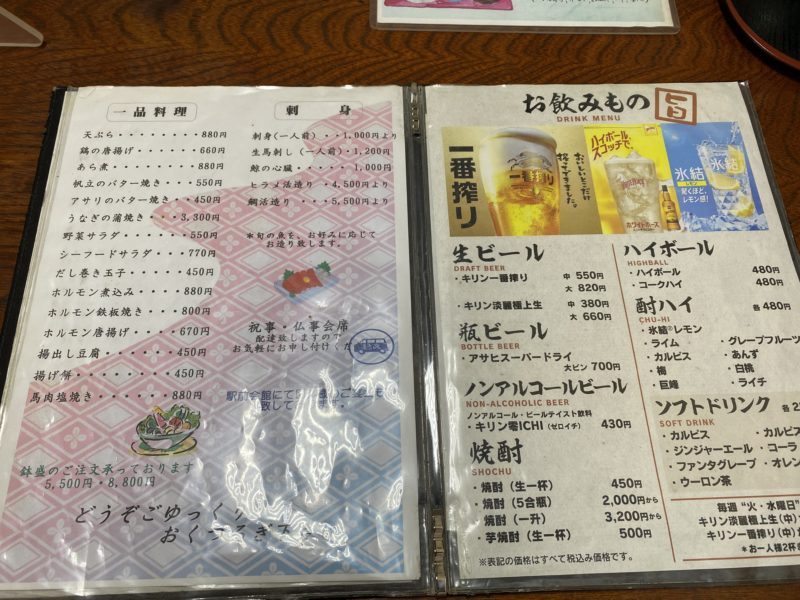 一品料理
天ぷら・・・・・・・・880円
鶏の唐揚げ・・・・・・660円
あら煮・・・・・・・・880円
帆立のバター焼き・・・550円
アサリのバター焼き・・450円
うなぎの蒲焼き・・・3,300円
野菜サラダ・・・・・550円
シーフードサラダ・・・770円
だし巻き玉子・・・・・450円
ホルモン煮込み・・・・880円
ホルモン鉄板焼き・・・800円
ホルモン唐揚げ・・・・670円
揚出し豆腐・・・・・450円
揚げ餅・・・・・・・450円
馬肉塩焼き・・・・・880円
鉢盛のご注文承っております
5,500円・8,800円
どうぞごゆっくり
刺身
刺身(一人前)・・1,000円より
生馬刺し(一人前)・1,200円
鯨の心臓・・・・・1,000円
ヒラメ活造り・・4,500円より
鯛活造り・・・・5,500円より
*旬の魚を、お好みに応じて
お造り致します。
祝事・仏事会席
配達致しますので
お気軽にお申し付けくだ
駅前会館にて
お飲みもの 旨
DRINK MENU
一番搾り
おいしいとこだけ
搾ってできました。
一番搾り
ハイボール
スコッチで。
ホワイトホース
氷結
レモン
驚くほど、
レモン感!
生ビール
DRAFT BEER
・キリン一番搾り 中 550円
大 820円
・キリン淡麗極上生 中 380円
大 660円
瓶ビール
BOTTLE BEER
・アサヒスーパードライ
大ビン 700円
ノンアルコールビール
NON-ALCOHOLIC BEER
ノンアルコール・ビールテイスト飲料
・キリン零ICHI(ゼロイチ) 430円
焼酎
SHOCHU
・焼酎(生一杯) 450円
・焼酎(5合瓶) 2,000円から
・焼酎(一升) 3,200円から
・芋焼酎(生一杯) 500円
※表記の価格はすべて税込み価格です。
ハイボール
HIGHBALL
・ハイボール 480円
・コークハイ 480円
酎ハイ 各 480円
CHU-HI
・氷結®レモン
・グレープフルーツ
・ライム
・あんず
・カルピス
・白桃
・梅
・ライチ
・巨峰
ソフトドリンク 各
SOFT DRINK
・カルピス
・ジンジャーエール
・コーラ
・ファンタグレープ
・ウーロン茶
毎週“火・水曜日”
キリン淡麗極上生(中)
キリン一番搾り(中)
*お一人様2杯